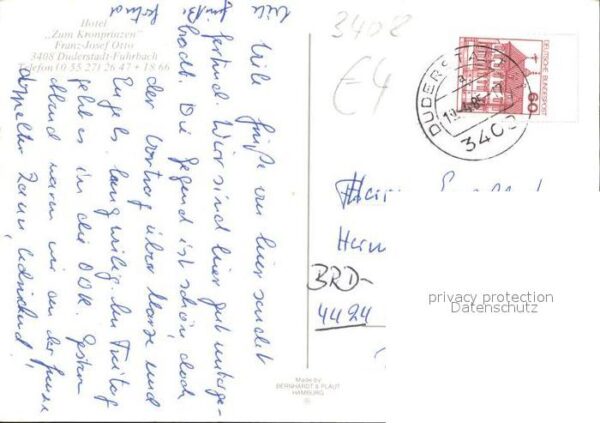 Hotel
„Zum Kronprinzen”
Franz-Josef Otto
3408 Duderstadt-Fuhrbach
Telefon (0 55 27) 26 47 + 18 66
Viele Grüße von hier sendet
Gertrud. Wir sind hier gut unterge-
bracht. Die Gegend ist schön, doch
der Vortrag über Marx und
Engels langweilig. Am Freitag
geht es in die DDR. Gestern
Abend waren wir an der Grenze
doppelter Zaun, bedrückend!
Viele
Grüße
Gertrud
3408
€4
DUDERSTADT
3408
DEUTSCHE BUNDESPOST
60
Herrn
BRD-
4424
privacy protection
Datenschutz
Made by
BERNHARDT & PLAUT
HAMBURG